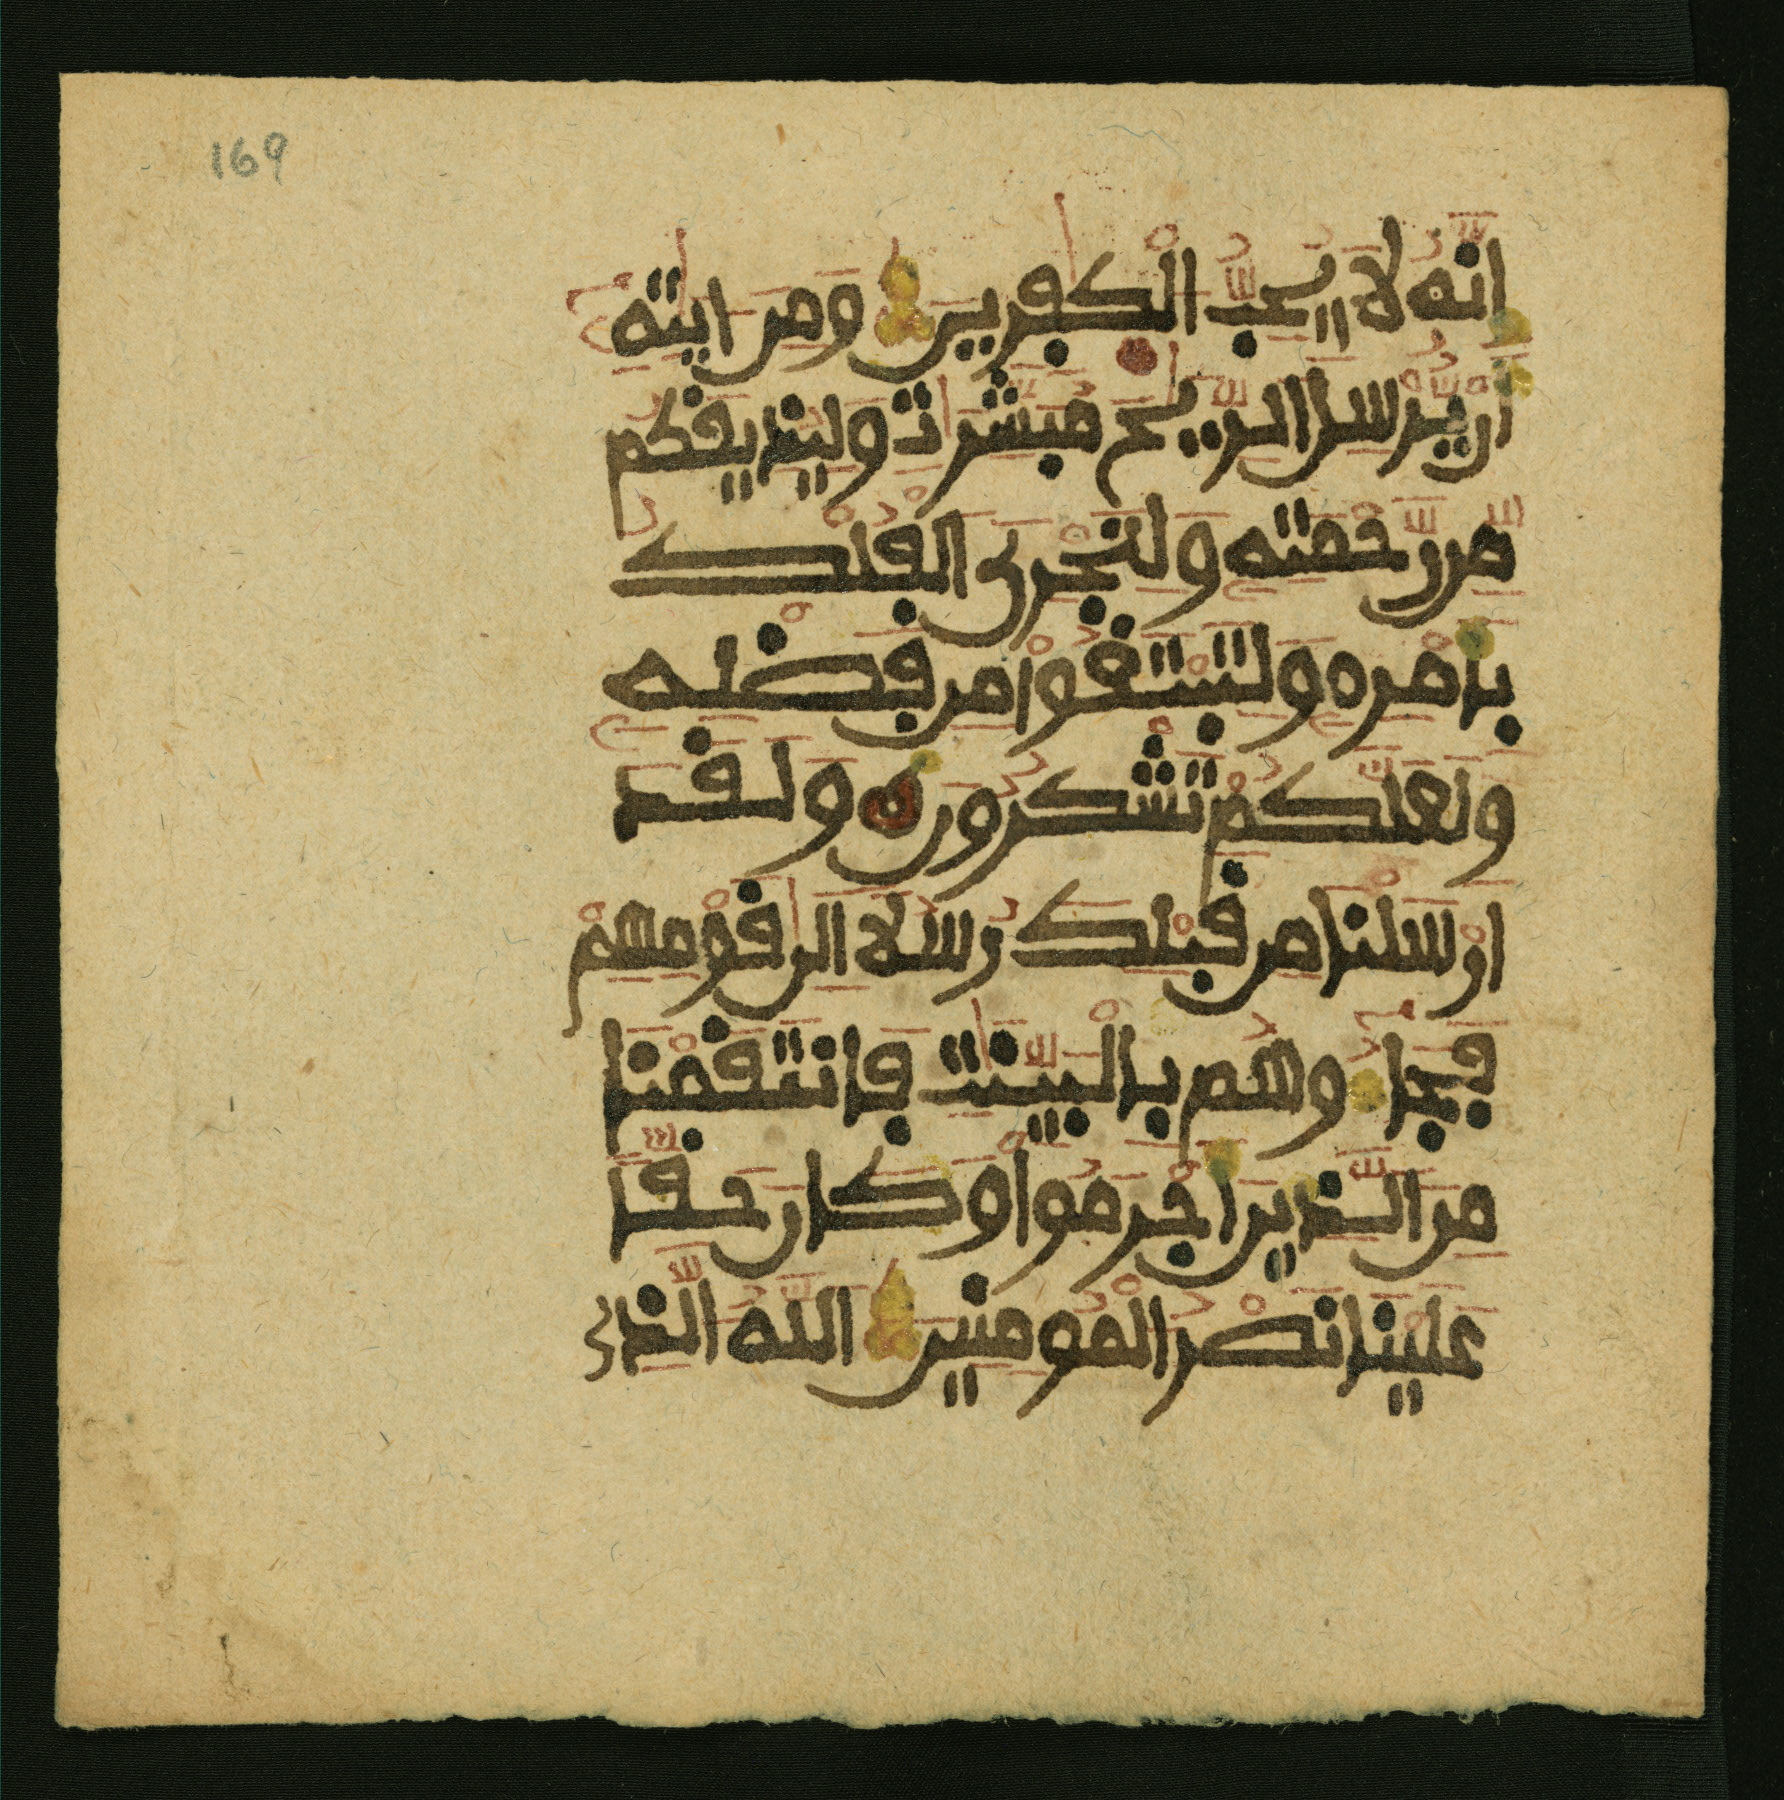 169
انه لا يحب الكفرين ومن ايته
ان يرسل الريح مبشرت وليذيقكم
من رحمته ولتجرى الفلك
بامره ولتبتغوا من فضله
ولعلكم تشكرون ولقد
ارسلنا من قبلك رسلا الى قومهم
فجا وهم بالبينت فانتقمنا
من الذين اجرموا وكان حقا
علينا نصر المومنين الله الذى